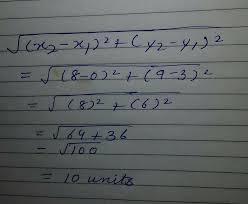 √(x₂-x₁)²+(y₂-y₁)²
= √(8-0)²+(9-3)²
= √(8)²+(6)²
= √64+36
= √100
= 10 units